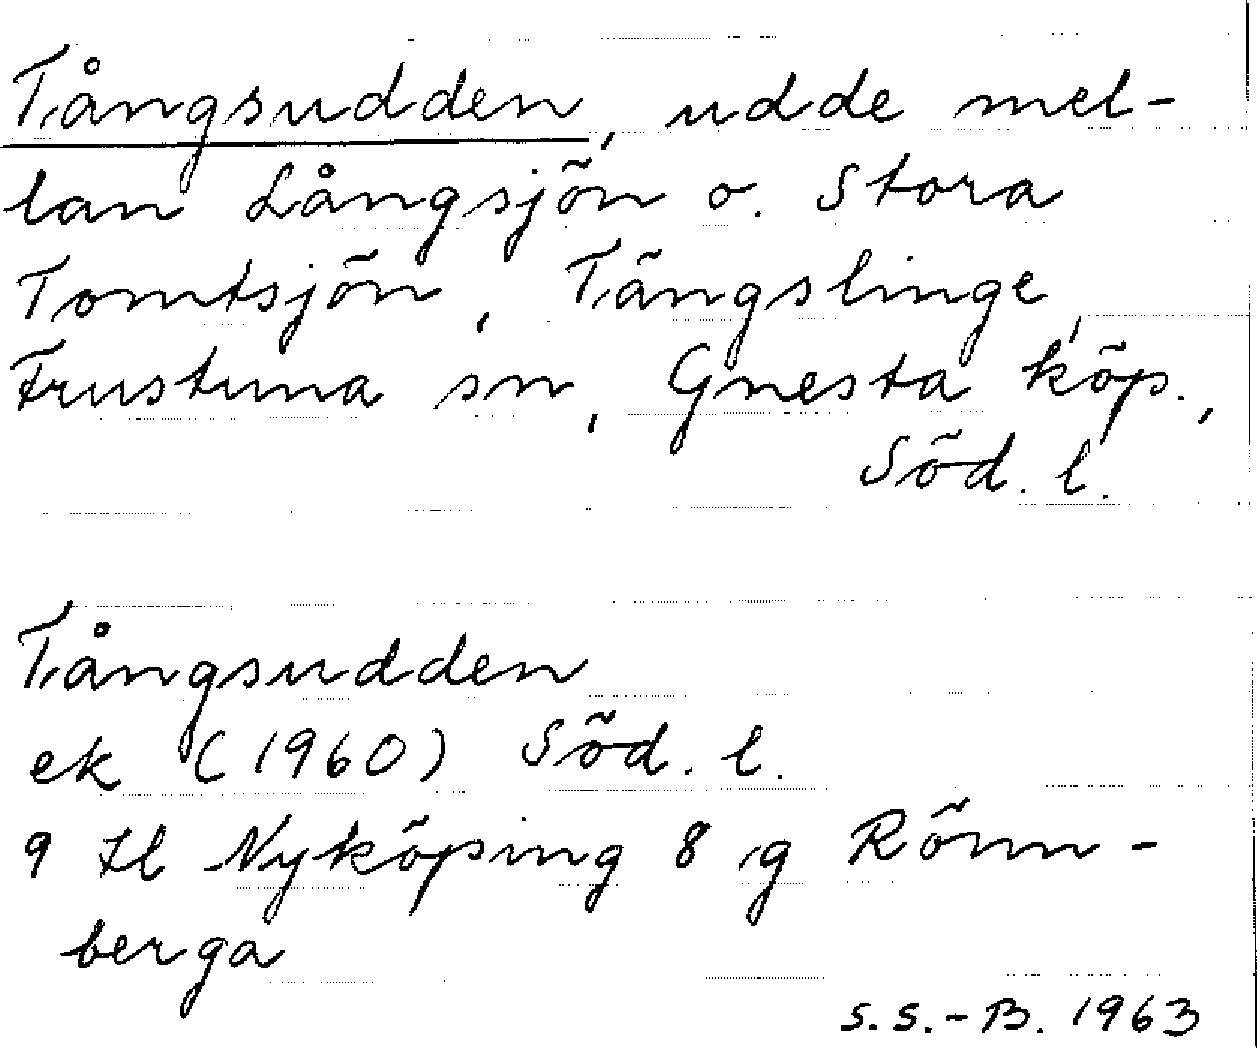 Tångsudden, udde mel-
lan Långsjön o. Stora
Tomtsjön, Tängslinge,
Frustuna sn, Gnesta köp.,
Söd. l.
Tångsudden
ek (1960) Söd. l.
9 H l Nyköping 8 g Rönn-
berga
S.S.-B. 1963